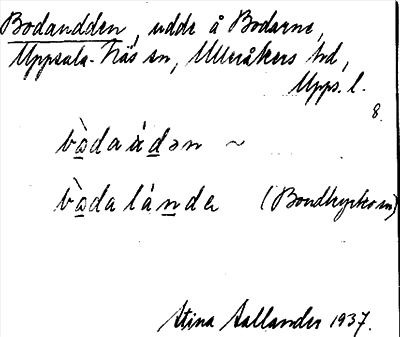 Bodaudden, udde å Bodarne,
Uppsala-Näs sn, Ulleråkers hd,
Upps. l.
8.
bò̲daúd̲ən ~
bò̲dalán̲da (Bondkyrko sn)
Stina Aallander 1937.